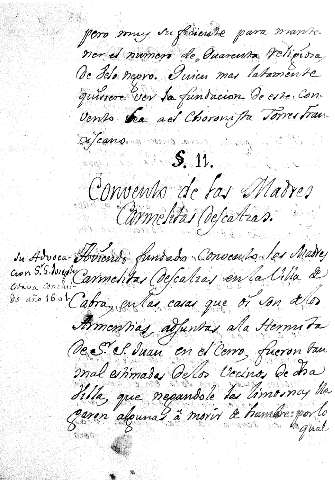 pero muy suficiente para mante
ner el numero de Quarenta religiosa
de Velo negro. Quien mas latamente
quisiere ver la fundacion de este Con
vento vea a el Choronista Torres Fran
ciscano.
§. 11.
Convento de las Madres
Carmelitas Descalzas.
Su Advoca
cion S. S. Joseph
año 1601
Haviendo fundado Convento las Madres
Carmelitas Descalzas en la Villa de
Cabra, en las casas que oi son de los
Armentias, adjuntas a la Hermita
de Sr. S. Juan en el Cerro, fueron tan
mal estimadas de los Vecinos de dha
Villa, que negandole las limosnas lle
garon algunas â morir de hambre: por lo
qual